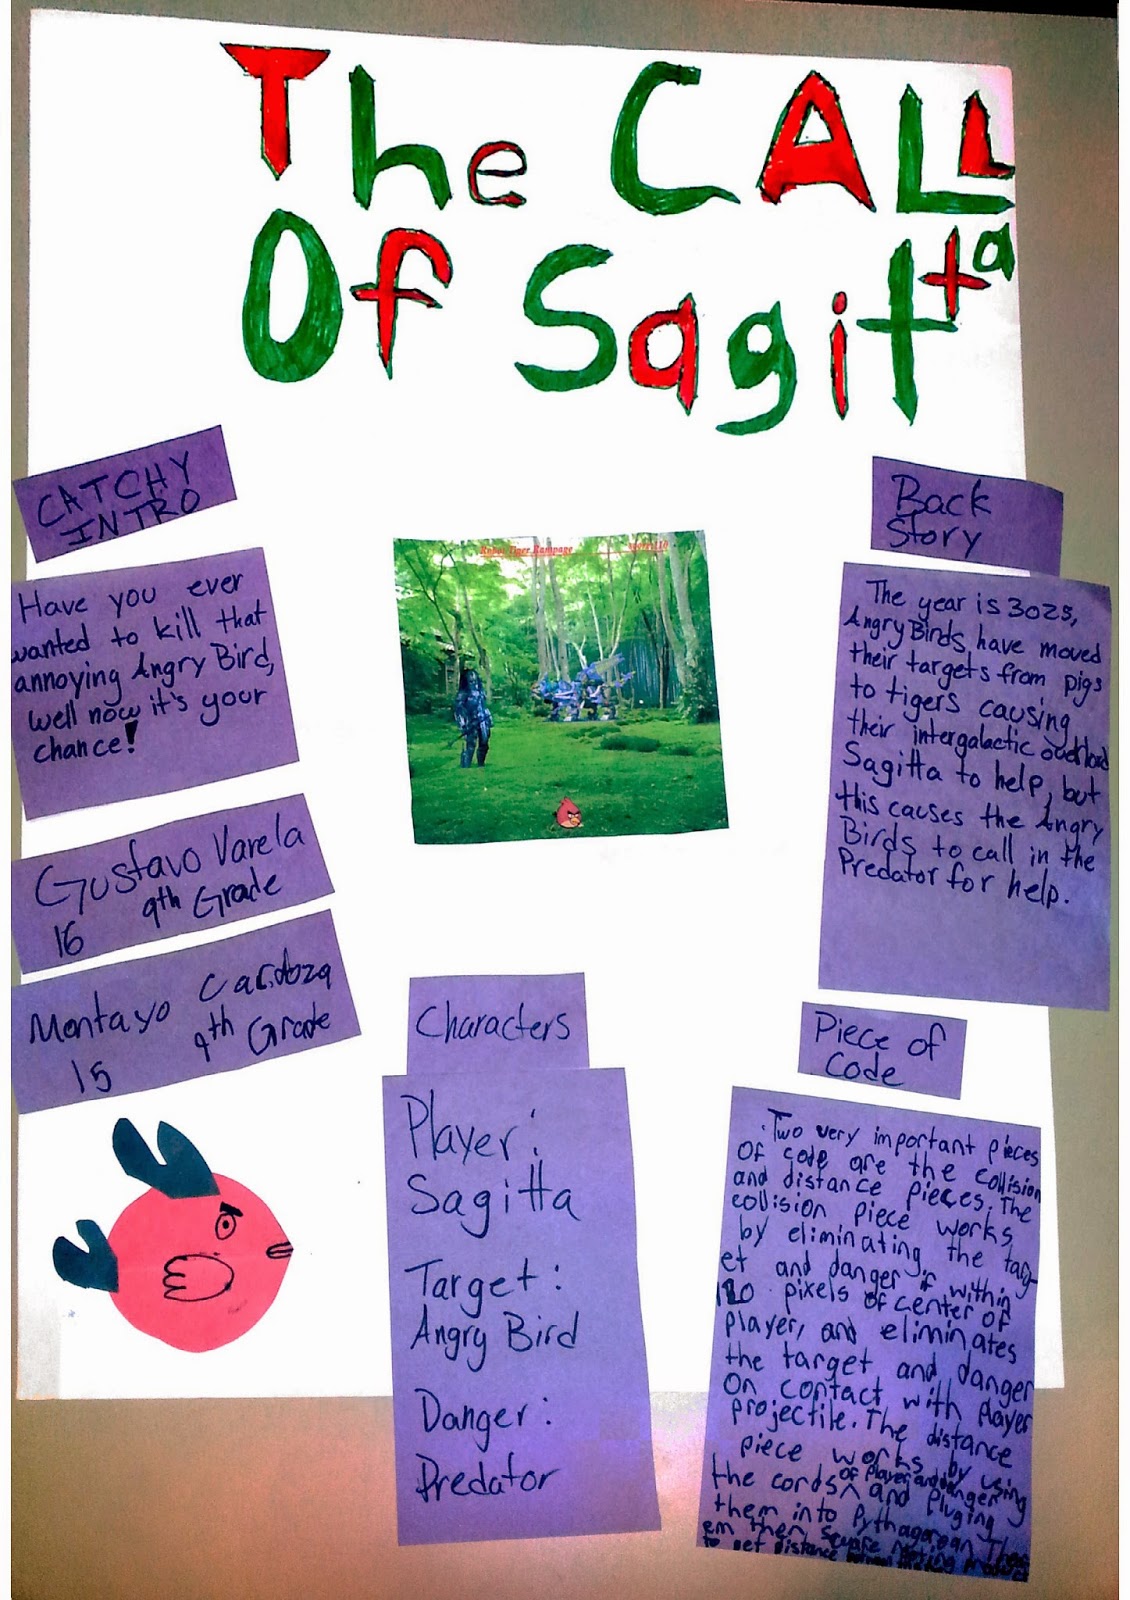 The CALL
Of Sagitta
CATCHY
INTRO
Have you ever
wanted to kill that
annoying Angry Bird,
well now it's your
chance!
Gustavo Varela
16 9th Grade
Montayo Cardoza
15 9th Grade
Robot Tiger Rampage
Characters
Player:
Sagitta
Target:
Angry Bird
Danger:
Predator
Back
Story
The year is 3025,
Angry Birds, have moved
their targets from pigs
to tigers causing
their intergalactic overlord
Sagitta to help, but
this causes the Angry
Birds to call in the
Predator for help.
Piece of
Code
Two very important pieces
Of code are the collision
and distance pieces. The
collision piece works
by eliminating the targ-
et and danger if within
120 pixels of center of
player, and eliminates
the target and danger
On contact with player
projectile. The distance
piece works by using
the cords of player and danger and pluging
them into Pythagorean Theor
em then square
to get distance